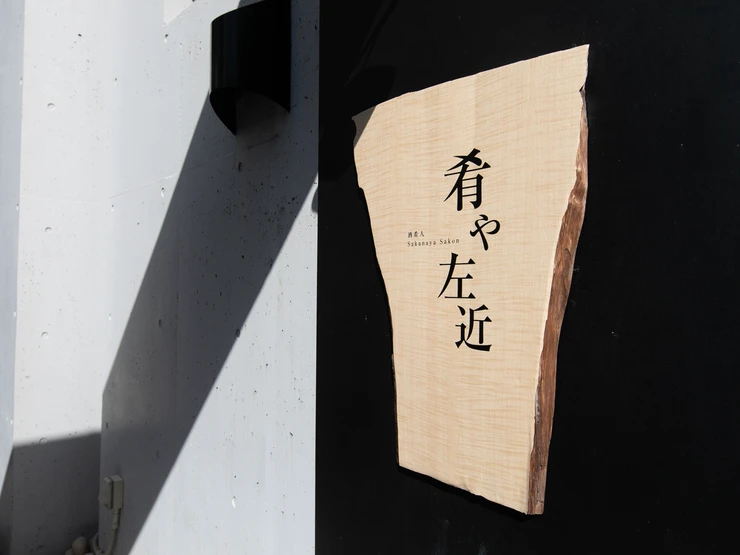 肴や左近
酒肴人
Sakanaya Sakon